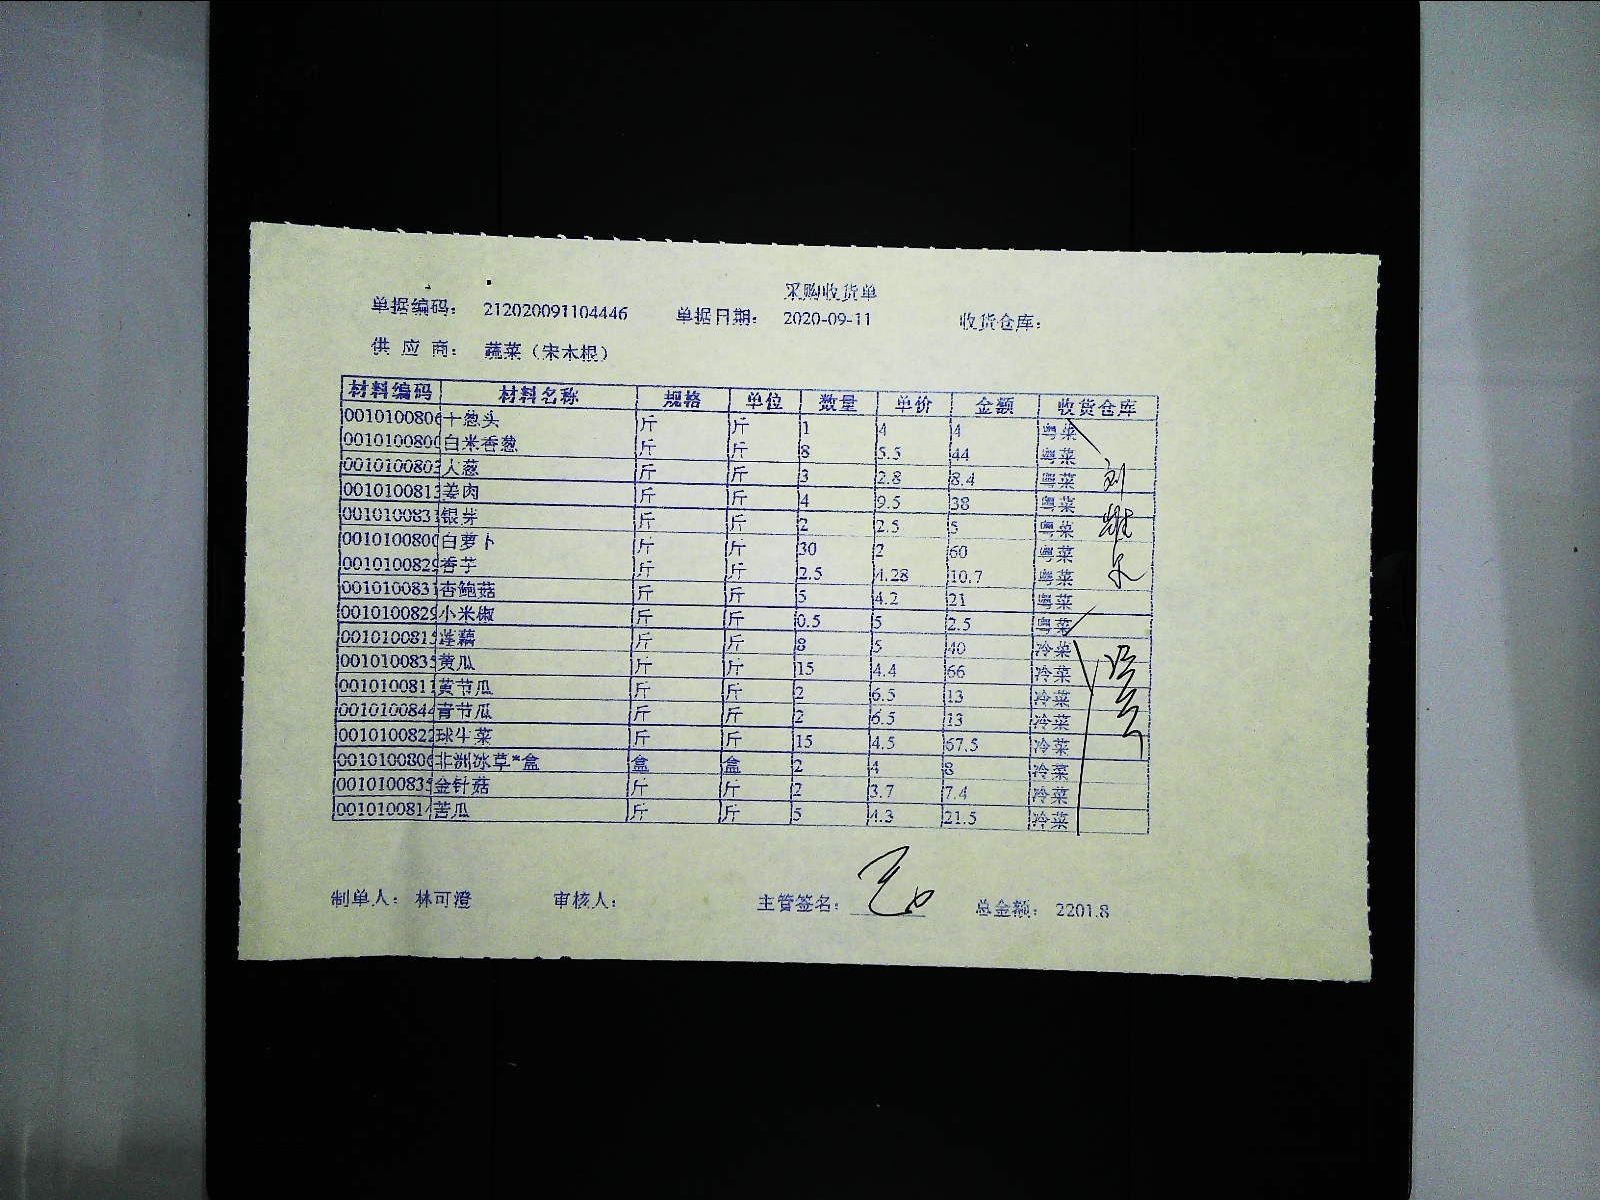 采购收货单
单据编码： 212020091104446 单据日期： 2020-09-11 收货仓库：
供 应 商： 蔬菜（宋木根）
材料编码 材料名称 规格 单位 数量 单价 金额 收货仓库
0010100806 干葱头 斤 斤 1 4 4 粤菜
001010080 白米香葱 斤 斤 8 5.5 44 粤菜
001010080 大葱 斤 斤 3 2.8 8.4 粤菜
001010081 姜肉 斤 斤 4 9.5 38 粤菜
001010083 银芽 斤 斤 2 2.5 5 粤菜
001010080 白萝卜 斤 斤 30 2 60 粤菜
001010082 香芋 斤 斤 2.5 4.28 10.7 粤菜
001010083 杏鲍菇 斤 斤 5 4.2 21 粤菜
001010082 小米椒 斤 斤 0.5 5 2.5 粤菜
001010081 莲藕 斤 斤 8 5 40 冷菜
001010083 黄瓜 斤 斤 15 4.4 66 冷菜
001010081 黄节瓜 斤 斤 2 6.5 13 冷菜
001010084 青节瓜 斤 斤 2 6.5 13 冷菜
001010082 球生菜 斤 斤 15 4.5 67.5 冷菜
001010080 非洲冰草*盒 盒 盒 2 4 8 冷菜
001010083 金针菇 斤 斤 2 3.7 7.4 冷菜
001010081 苦瓜 斤 斤 5 4.3 21.5 冷菜
制单人： 林可澄 审核人： 主管签名： 总金额： 2201.8